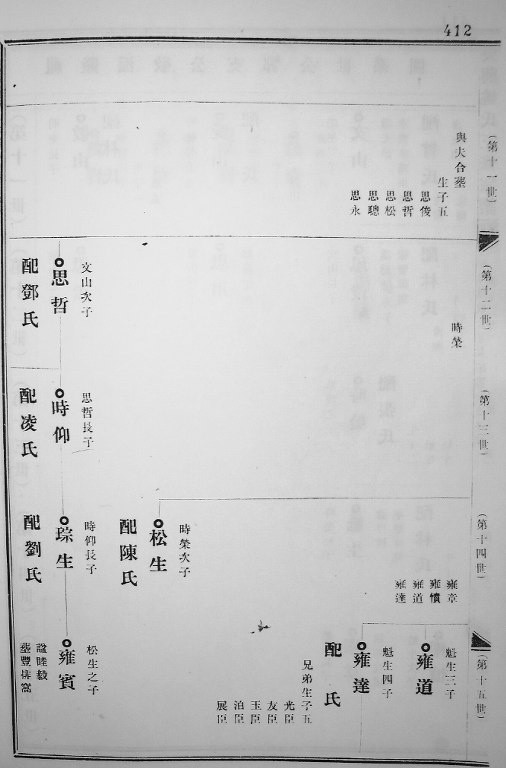 412
(第十一世)
與夫合塟
生子五
思俊
思哲
思松
思聰
思永
(第十二世)
時榮
文山次子
思哲
配鄧氏
(第十三世)
思哲長子
時仰
配凌氏
(第十四世)
雍章
雍憤
雍道
雍達
時榮次子
松生
配陳氏
時仰長子
琮生
配劉氏
(第十五世)
魁生三子
雍道
魁生四子
雍達
配 氏
兄弟生子五
光臣
友臣
玉臣
泊臣
展臣
松生之子
雍賓
謚睦毅
塟豐排窩